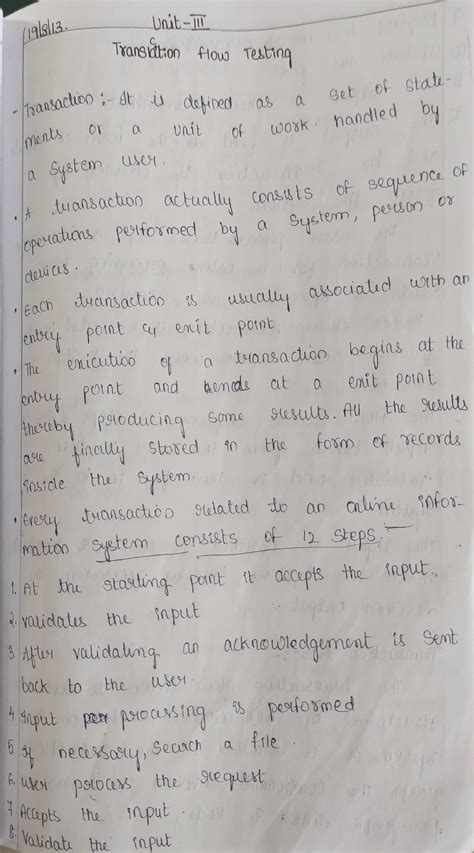 19/8/13.
Unit-III
Transaction flow Testing
- Transaction :- It is defined as a set of state-
ments or a unit of work handled by
a system user.
• A transaction actually consists of sequence of
operations performed by a system, person or
devices.
• Each transaction is usually associated with an
entry point & exit point.
• The exicution of a transaction begins at the
entry point and bends at a exit point
thereby producing some results. All the results
are finally stored in the form of records
inside the system.
• Every transaction related to an online infor-
mation system consists of 12 steps.
1. At the starting point it accepts the input.
2. validates the input
3. After validating an acknowledgement is sent
back to the user.
4. Input processing is performed
5. If necessary, search a file.
6. user process the request
7. Accepts the input.
8. Validate the input.